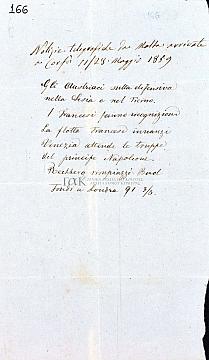 166
Notizie telegrafiche da Malta arrivate
a Corfù 11/23 Maggio 1859
Gli Austriaci sulla difensiva
nella Sesia e nel Ticino.
I Francesi fanno recognizioni
La flotta Francese innanzi
Venezia attende le truppe
del principe Napoleone.
rimpiazzò Buol
Fondi a Londra 91 3/8.